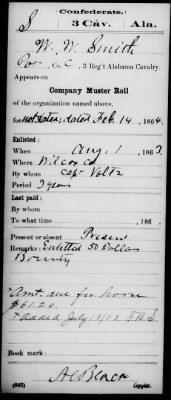 Confederate.
S 3 Cav. Ala.
W. W. Smith
Pvt, Co. C, 3 Reg't Alabama Cavalry.
Appears on
Company Muster Roll
of the organization named above,
for not stated, dated Feb. 14, 1864.
Enlisted:
When Aug. 1, 186
Where Wilcox Co.
By whom Capt Voltz
Period 3 years
Last paid:
By whom
To what time , 186 .
Present or absent Present
Remarks: Entitled 50 Dollars
Bounty
Amt. due for horse
$61.20
Book mark:
(642) Copyist.